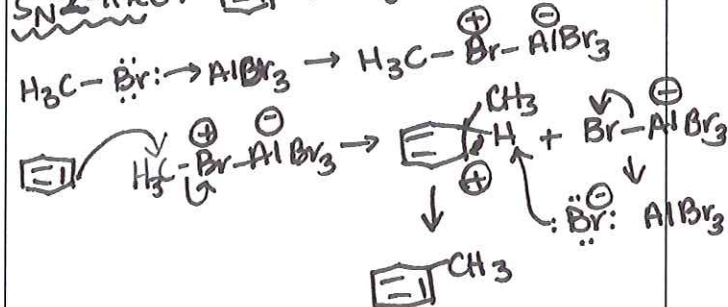 SN2
H₃C–Br: → AlBr₃ → H₃C–Br–AlBr₃ ⊕ ⊖
H₃C–Br–AlBr₃ ⊕ ⊖ → CH₃ H ⊕ + Br–AlBr₃ ⊖
:Br: ⊖ AlBr₃
CH₃